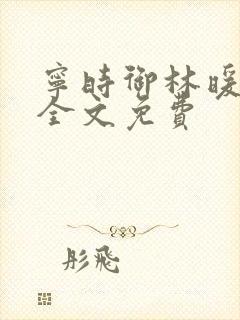 寧時御林暖
全文免費
彤飛